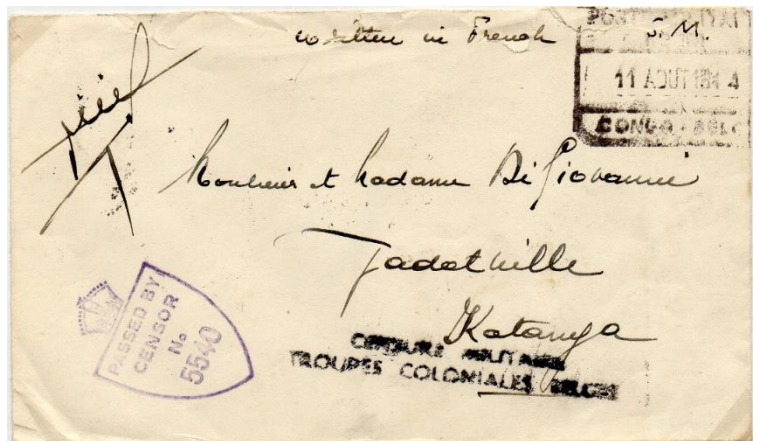 written in French S.M.
11 AOUT 194 4
CONGO BELG
Monsieur et Madame Di Giovanni
Jadotville
Katanga
PASSED BY
CENSOR
No
5540
CENSURE MILITAIRE
TROUPES COLONIALES BELGES